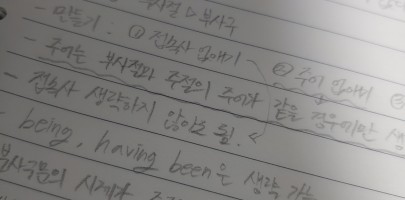 부사절 ▷ 부사구
- 만들기 : ① 접속사 없애기 ② 주어 없애기 ③
- 주어는 부사절과 주절의 주어가 같을 경우에만 생
- 접속사 생략하지 않아도 됨.
- being, having been은 생략 가능
분사구문의 시제가